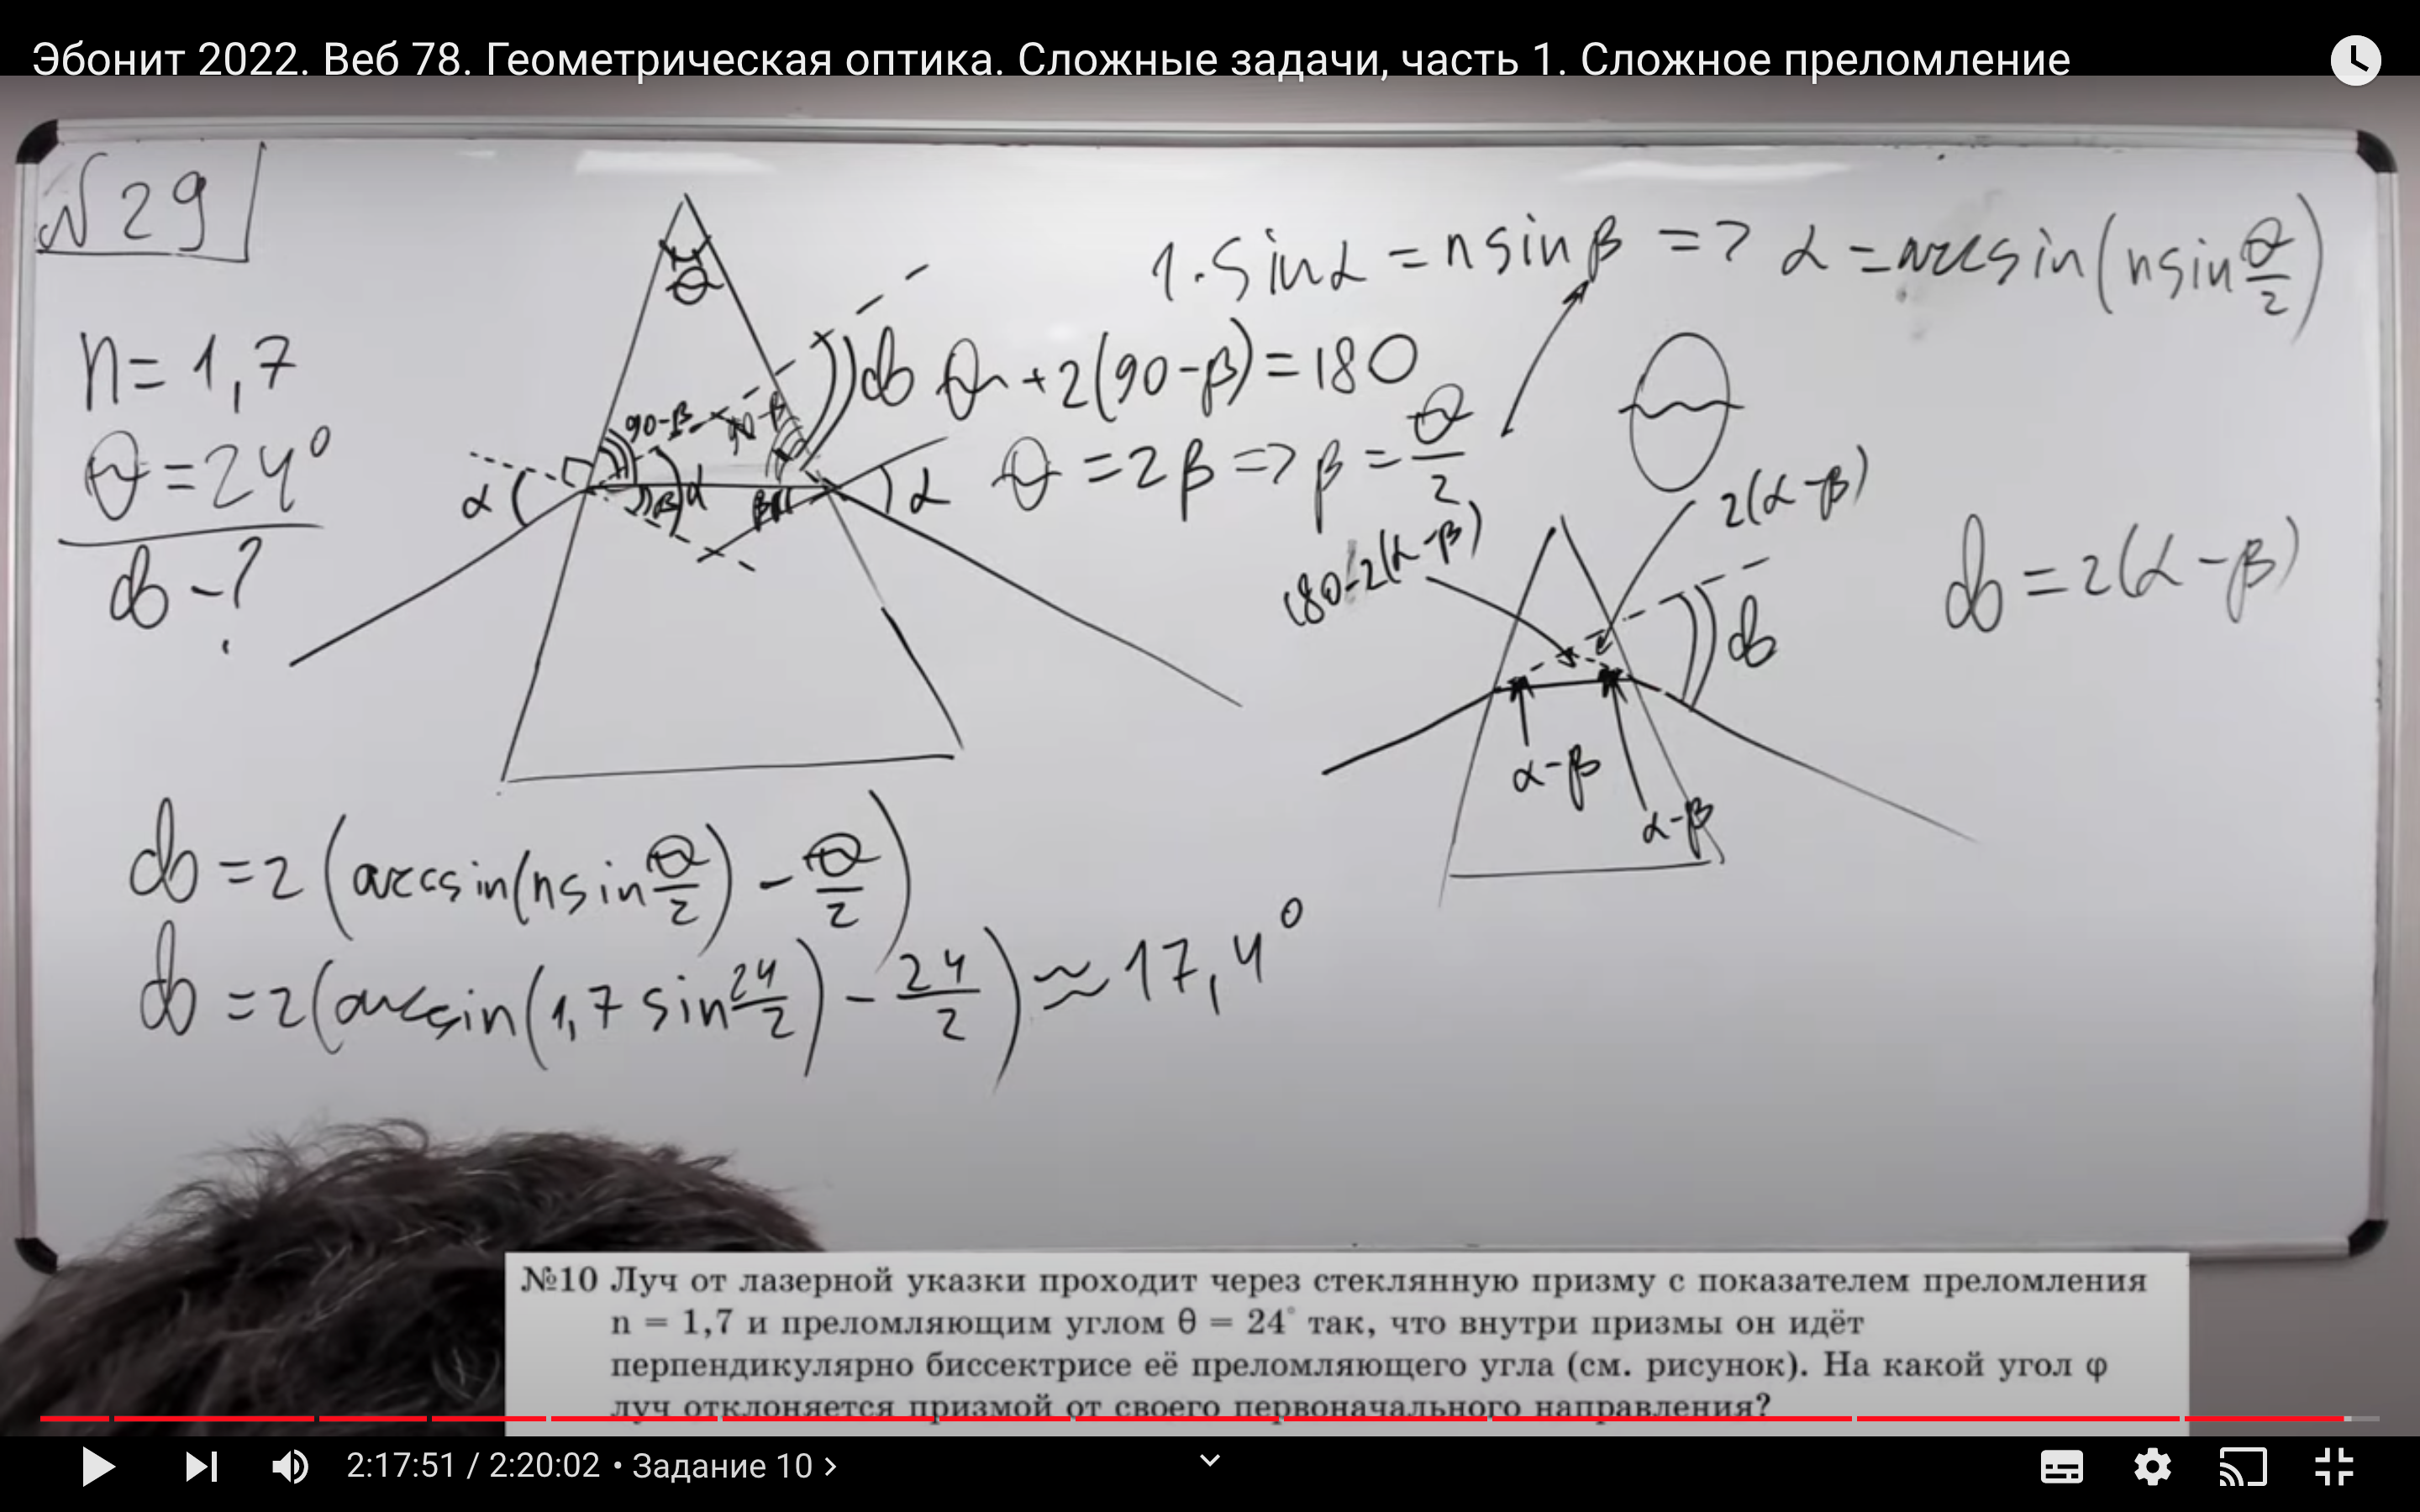 Эбонит 2022. Веб 78. Геометрическая оптика. Сложные задачи, часть 1. Сложное преломление
№29
n = 1,7
θ = 24°
φ - ?
θ
90-β
α
β
α
β
α
φ
1·sinα = n sinβ => α = arcsin(n sin θ/2)
θ + 2(90-β) = 180
θ = 2β => β = θ/2
θ
180-2(α-β)
2(α-β)
φ
α-β
α-β
φ = 2(α-β)
φ = 2(arcsin(n sin θ/2) - θ/2)
φ = 2(arcsin(1,7 sin 24/2) - 24/2) ≈ 17,4°
№10 Луч от лазерной указки проходит через стеклянную призму с показателем преломления
n = 1,7 и преломляющим углом θ = 24° так, что внутри призмы он идёт
перпендикулярно биссектрисе её преломляющего угла (см. рисунок). На какой угол φ
луч отклоняется призмой от своего первоначального направления?
2:17:51 / 2:20:02 • Задание 10 >